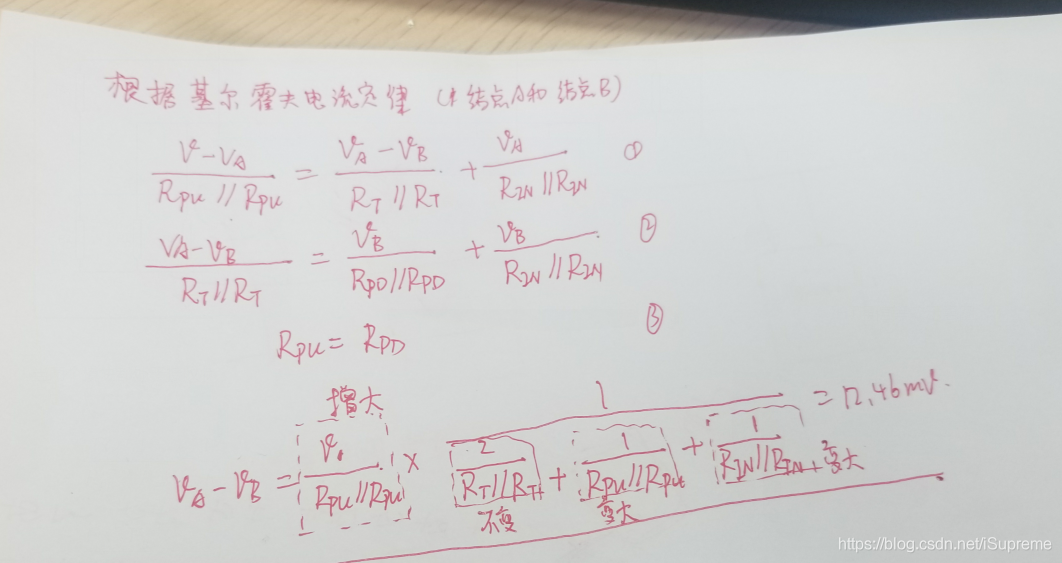 根据基尔霍夫电流定律 (对结点A和结点B)
(V-VA)/(RPU//RPU) = (VA-VB)/(RT//RT) + VA/(RIN//RIN) ①
(VA-VB)/(RT//RT) = VB/(RPD//RPD) + VB/(RIN//RIN) ②
RPU = RPD ③
增大
VA-VB = V/(RPU//RPU) × 1/(2/(RT//RT) + 1/(RPU//RPU) + 1/(RIN//RIN)) = 12.46mV.
不变 变大 变大
https://blog.csdn.net/iSupreme